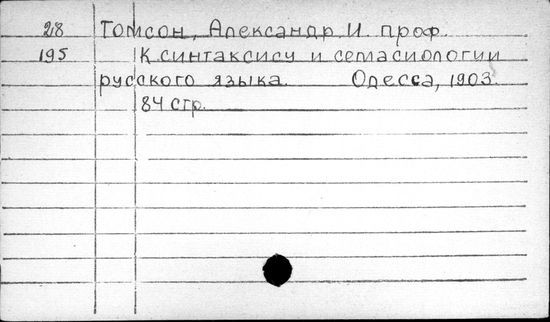 28 Томсон, Александр И. проф.
195 К синтаксису и семасиологии
русского языка. Одесса, 1903.
84 стр.